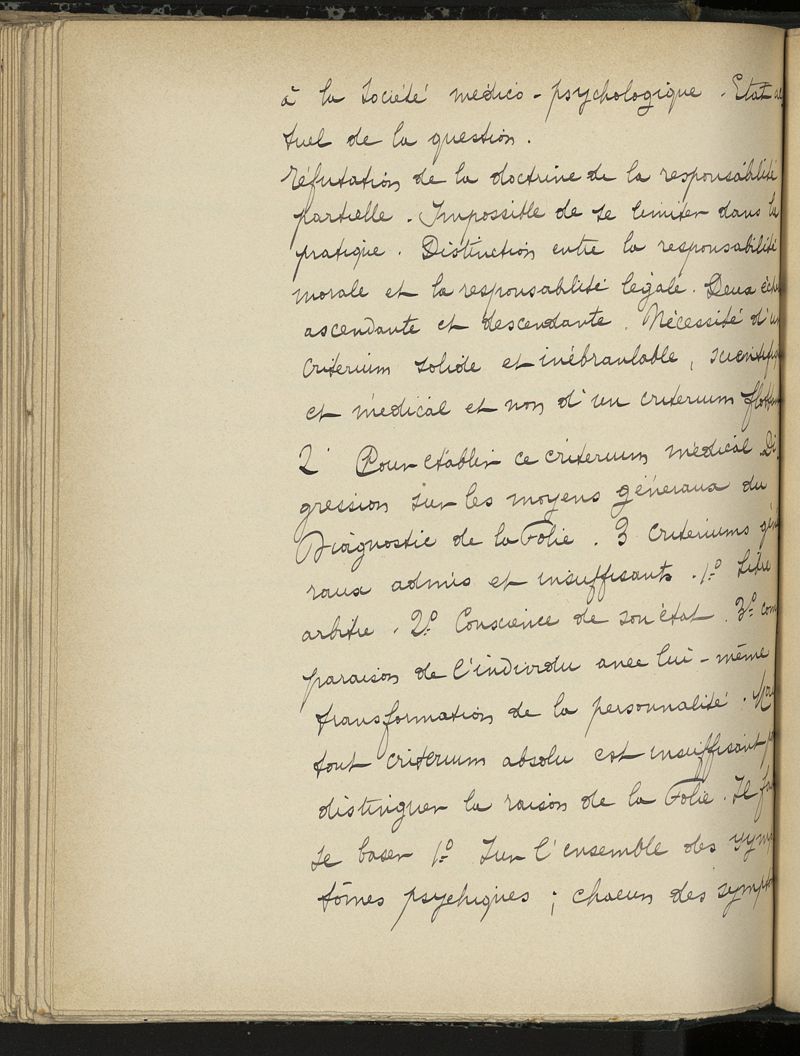 à la Société médico-psychologique. Etat ac
tuel de la question.
Réfutation de la doctrine de la responsabilité
partielle. Impossible de se limiter dans la
pratique. Distinction entre la responsabilité
morale et la responsabilité légale. Deux éch
ascendante et descendante. Nécessité d'un
criterium solide et inébranlable, scientifiq
et médical et non d'un criterium flottan
2° Pour établir ce criterium médical Di
gression sur les moyens généraux du
Diagnostic de la Folie. 3 criteriums géné
raux admis et insuffisants. 1° Libre
arbitre. 2° Conscience de son état. 3° com
paraison de l'individu avec lui-même
transformation de la personnalité.
tout criterium absolu est insuffisant p
distinguer la raison de la Folie. Il fau
se baser 1° Sur l'ensemble des symp
tômes psychiques; chacun des sympto